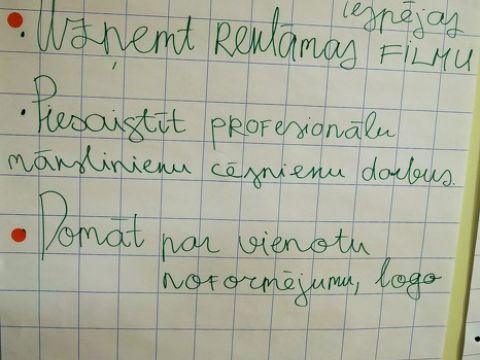 iespējas
• Uzņemt REKLĀMAS FILMU
• Piesaistīt PROFESIONĀLU
mākslinieku cēsnieku darbus.
• Domāt par vienotu
noformējumu, logo